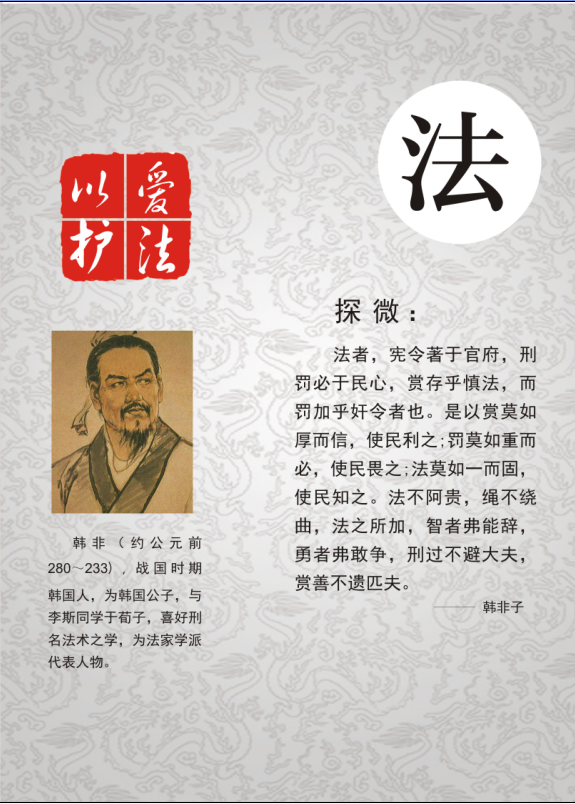 法
以爱
护法
探微：
法者，宪令著于官府，刑
罚必于民心，赏存乎慎法，而
罚加乎奸令者也。是以赏莫如
厚而信，使民利之;罚莫如重而
必，使民畏之;法莫如一而固，
使民知之。法不阿贵，绳不绕
曲，法之所加，智者弗能辞，
勇者弗敢争，刑过不避大夫，
赏善不遗匹夫。
——— 韩非子
韩非（约公元前
280～233），战国时期
韩国人，为韩国公子，与
李斯同学于荀子，喜好刑
名法术之学，为法家学派
代表人物。